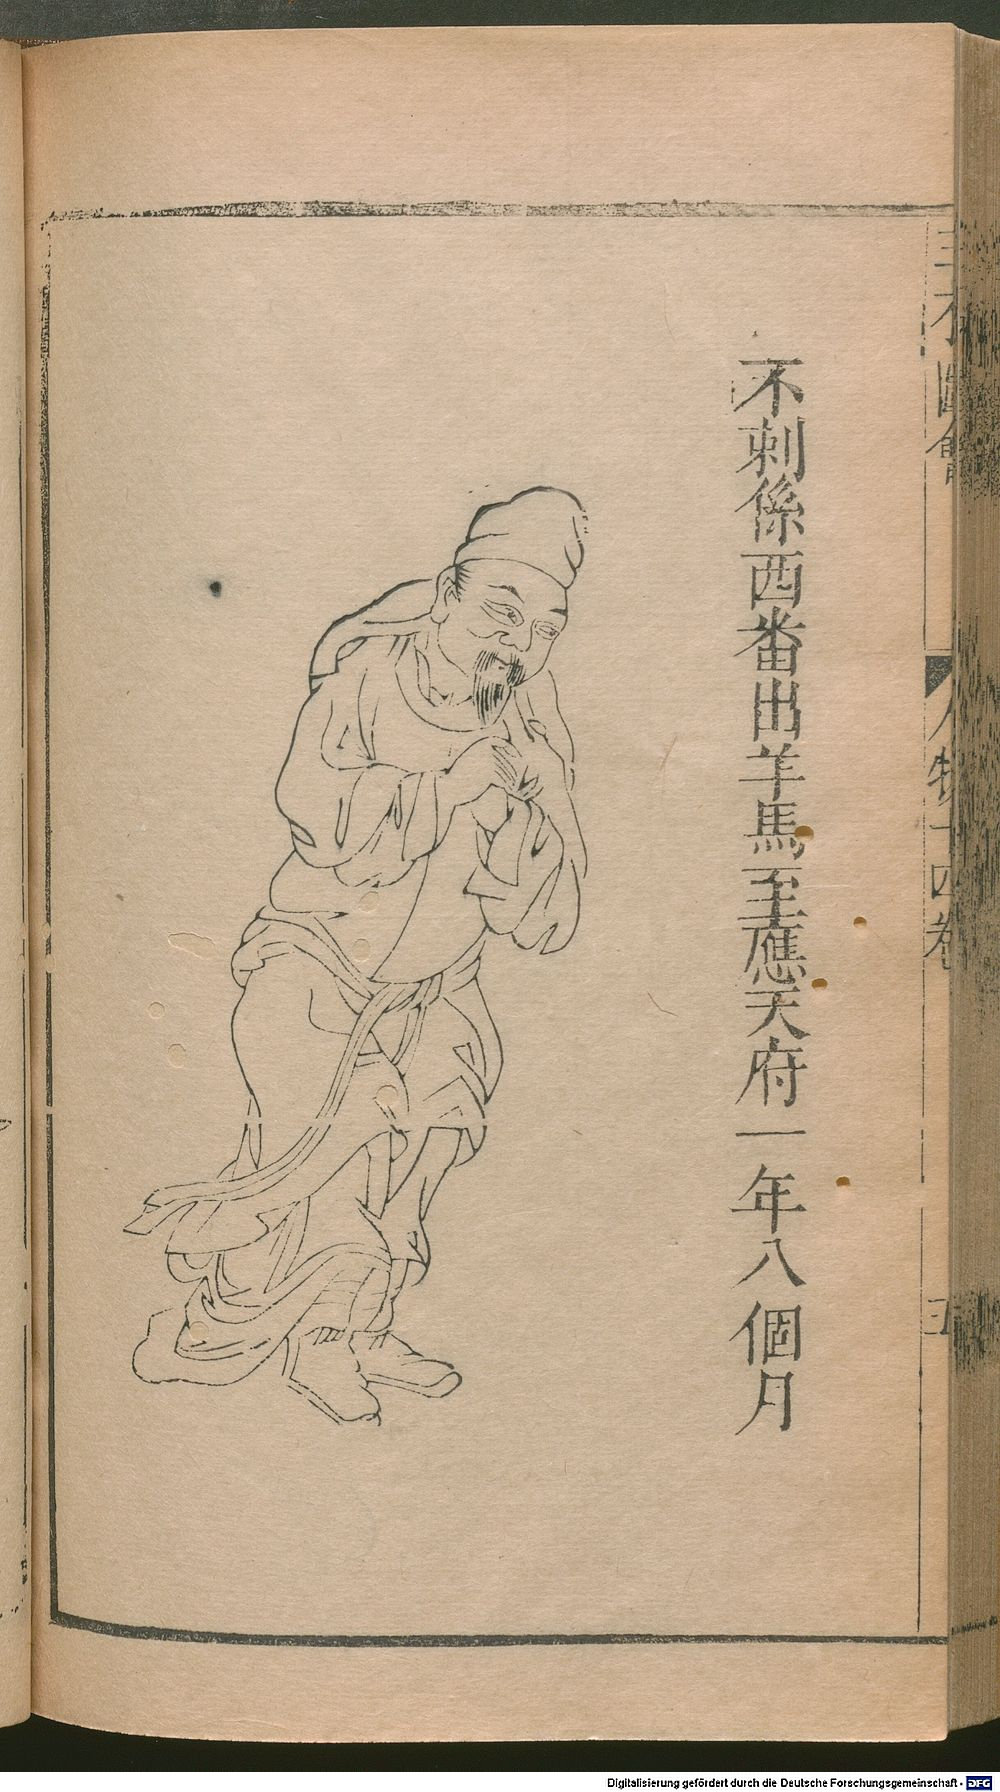 三才圖會 人物十四卷 五
不剌係西番出羊馬至應天府一年八個月
Digitalisierung gefördert durch die Deutsche Forschungsgemeinschaft - DFG